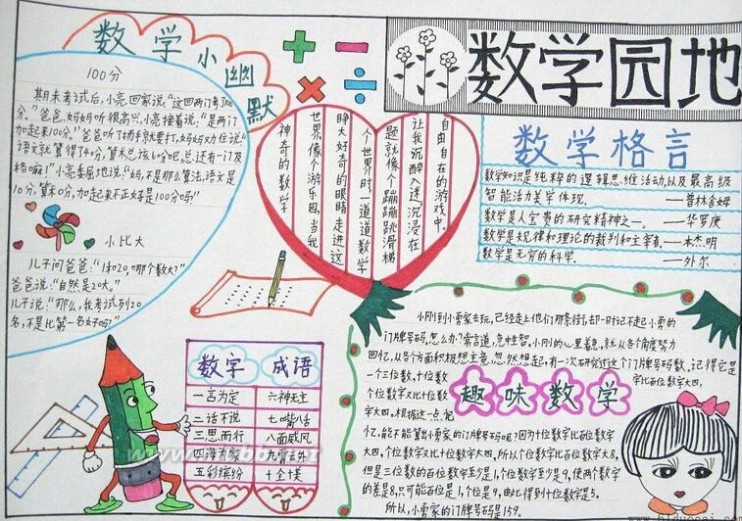 数学小幽默
100分
期末考试后,小亮回家说:"这回两门考100
分。"爸爸妈妈听很高兴,小亮接着说:"是两门
加起来100分。"爸爸听了扬手就要打,妈妈劝住说:"
语文就算得了40分,算术总该60分吧,总还有一门及
格嘛!"小亮委屈地说:"妈,不是那么算法,语文是
10分,算术0分,加起来不正好是100分吗?"
小比大
儿子问爸爸:"1和20,哪个数大?"
爸爸说:"自然是20大。"
儿子说:"那么,我考试列20
名,不是比第一名好吗?"
神奇的数学
世界像个游乐园,当我
睁大好奇的眼睛走进这
个世界时,一道道数学
题就像个蹦蹦跳滑梯
让我沉醉入迷,沉浸在
自由自在的游戏中。
数学园地
数学格言
数学知识是纯粹的逻辑思维活动,以及最高级
智能活力美学体现。
——普林舍姆
数学是人宝贵的研究精神之一。——华罗庚
数学是规律和理论的裁判和主宰者。——本杰明
数学是无穷的科学。——外尔
数字 成语
一言为定 六神无主
二话不说 七嘴八舌
三思而行 八面威风
四海为家 九霄云外
五彩缤纷 十全十美
趣味数学
小刚到小雷家去玩,已经走上他们那条街,却一时记不起小雷的
门牌号码,怎么办?常言道,急中生智。小刚的心里着急,就从各个角度努力
回忆,从各方面积极想主意,忽然想起,有一次研究过这个门牌号码数,记得它是
一个三位数,十位数字比百位数字大四,
个位数字又比十位数
字大四。根据这一点记
忆,能不能算出小雷家的门牌号码呢?因为十位数字比百位数字
大四,个位数字又比十位数字大四,所以个位数字比百位数字大8,
但是三位数的百位数字至少是1,个位数字至少是9,使两个数字
的差是8,只可能百位是1,个位是9,由此得到十位数字是5。
所以,小雷家的门牌号码是159。